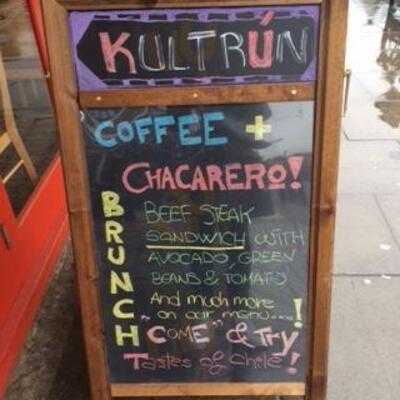 KULTRÚN
COFFEE +
CHACARERO!
BRUNCH
BEEF STEAK
SANDWICH WITH
AVOCADO, GREEN
BEANS & TOMATO
And much more
~ on our menu....!
"COME" & Try
Tastes of Chile!